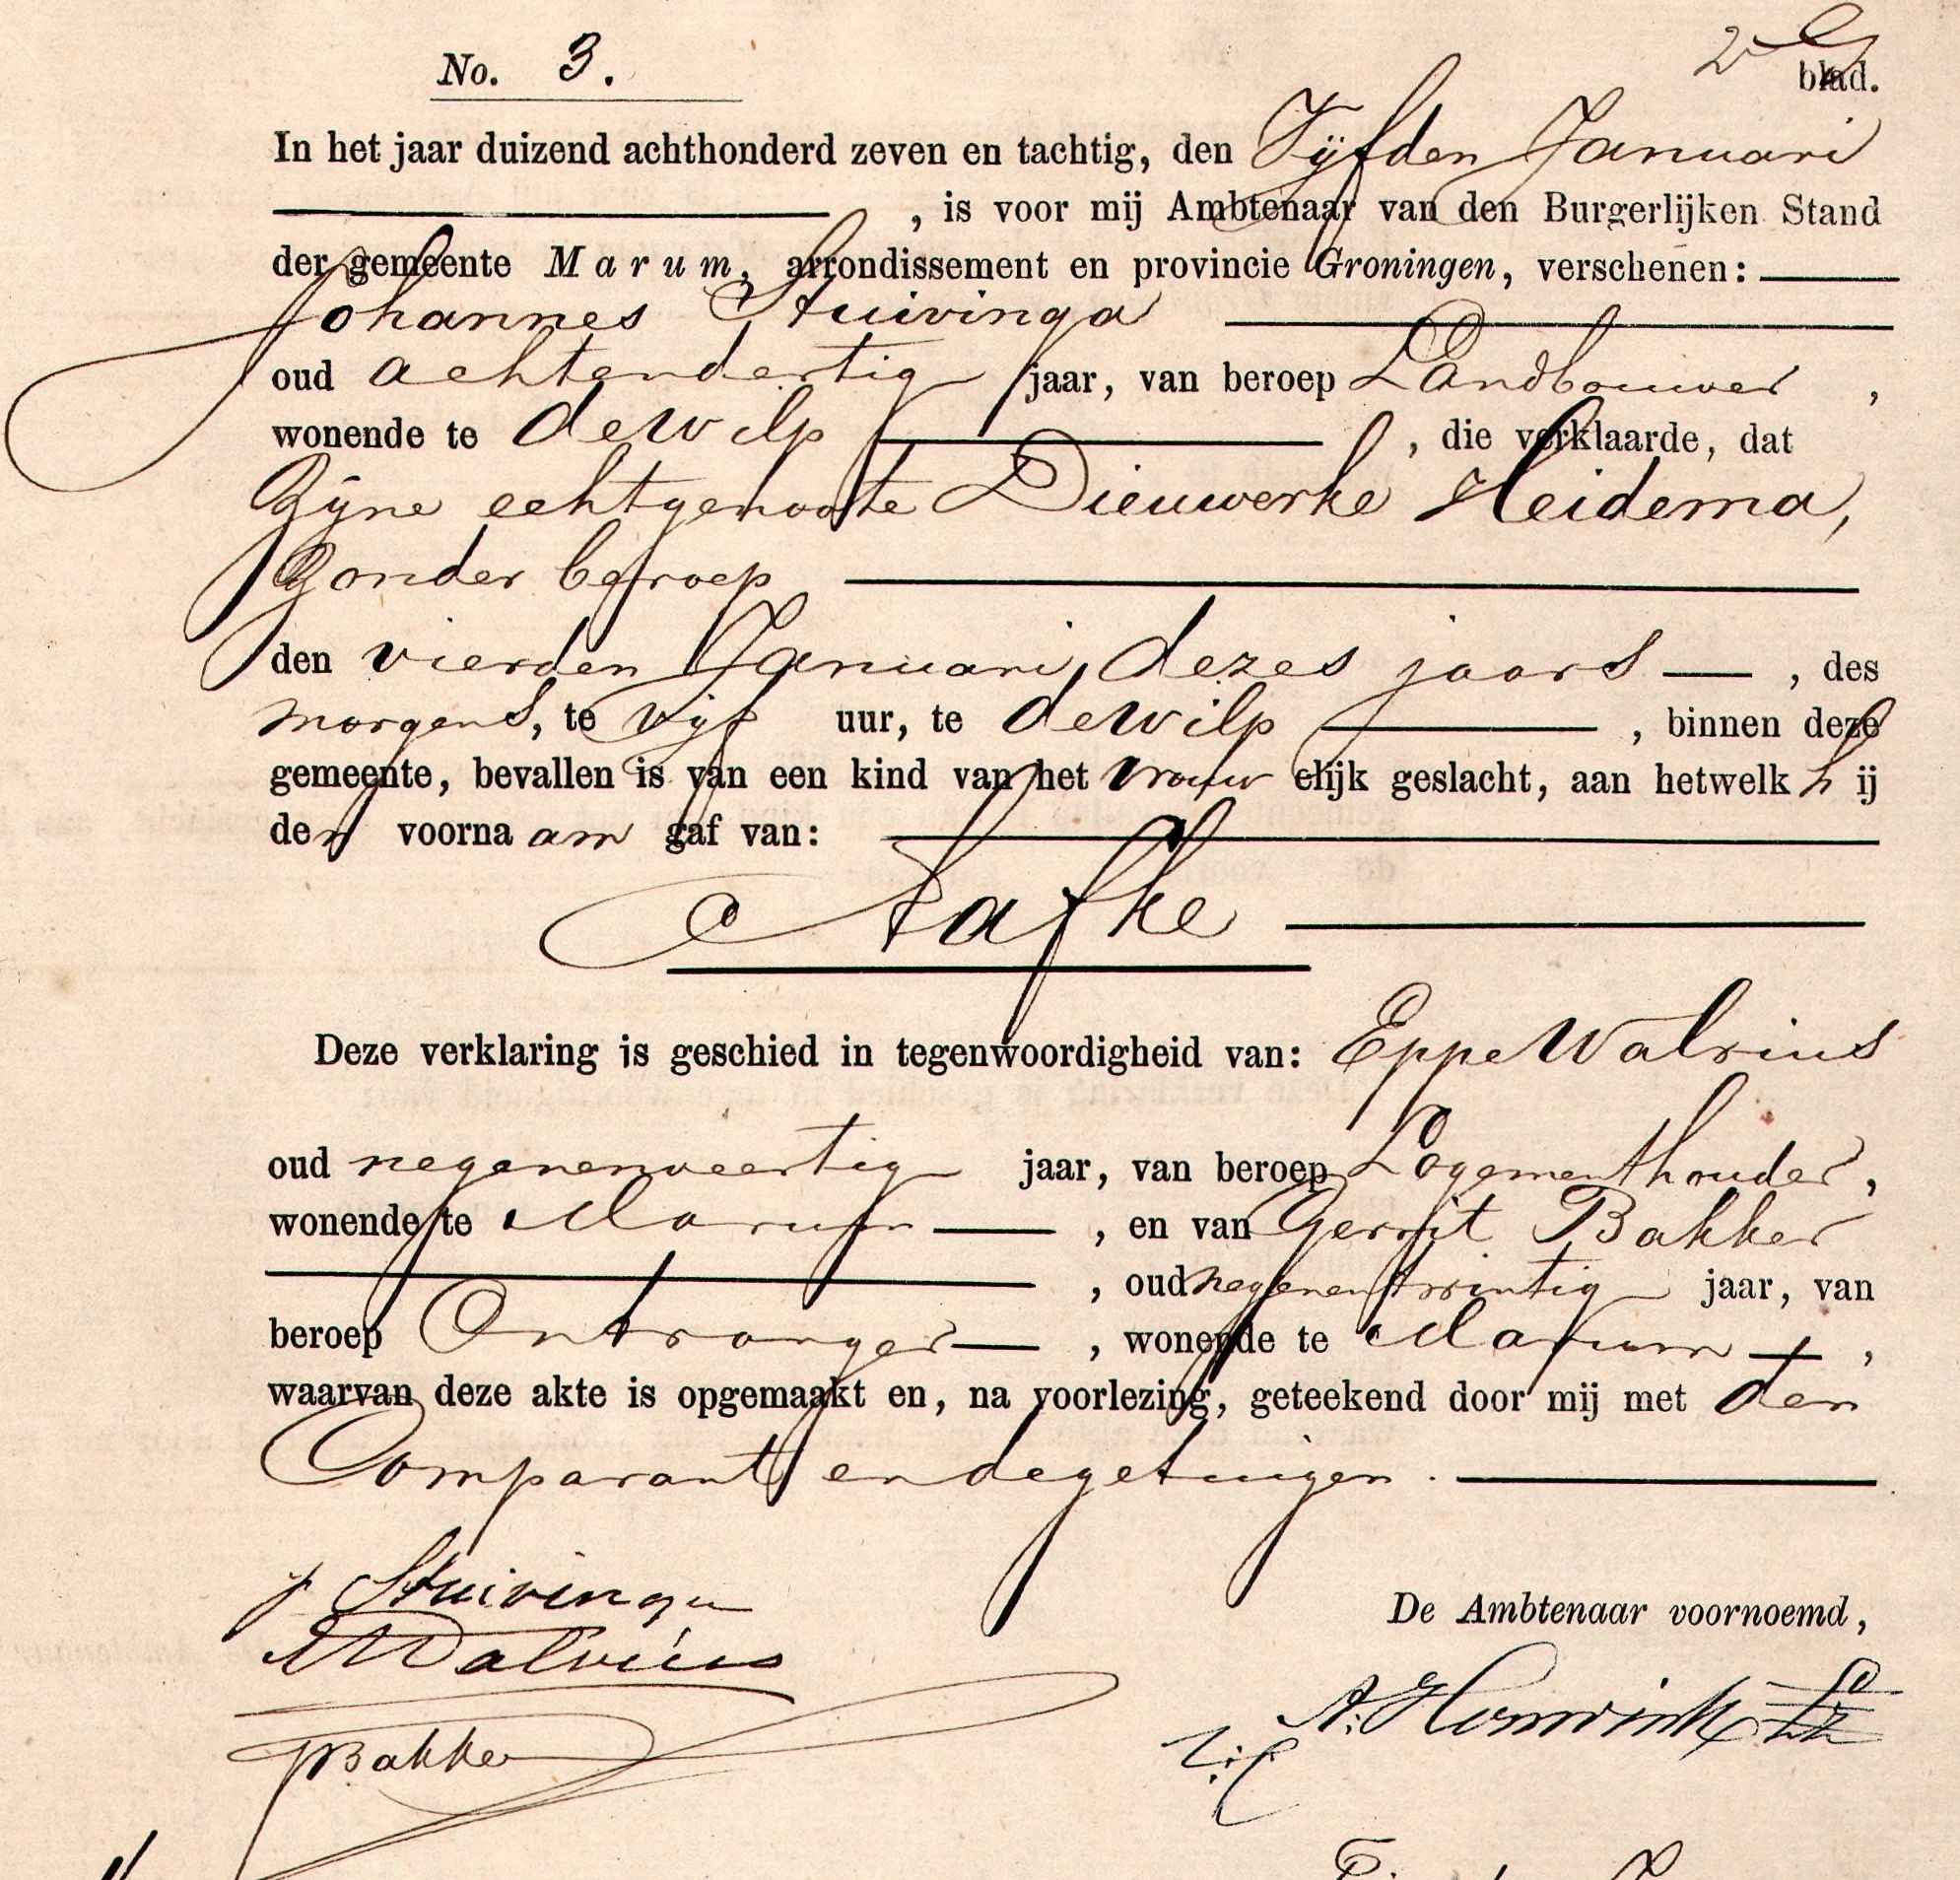 No. 3.
2e blad.
In het jaar duizend achthonderd zeven en tachtig, den Vijfden Januari
, is voor mij Ambtenaar van den Burgerlijken Stand
der gemeente Marum, arrondissement en provincie Groningen, verschenen:
Johannes Stuivinga
oud achtendertig jaar, van beroep Landbouwer,
wonende te de Wilp, die verklaarde, dat
Zijne echtgenoote Dieuwerke Heidema,
Zonder beroep
den vierden Januari, dezes jaars, des
morgens, te vijf uur, te de Wilp, binnen deze
gemeente, bevallen is van een kind van het vrouwelijk geslacht, aan hetwelk hij
den voornaam gaf van:
Aafke
Deze verklaring is geschied in tegenwoordigheid van: Eppe Walrius
oud negenenveertig jaar, van beroep Logementhouder,
wonende te Marum, en van Gerrit Bakker
, oud negenentwintig jaar, van
beroep Ontvanger, wonende te Marum,
waarvan deze akte is opgemaakt en, na voorlezing, geteekend door mij met den
Comparant en de getuigen.
J Stuivinga
De Ambtenaar voornoemd,
EWalrius
A. Nonwink
Bakker